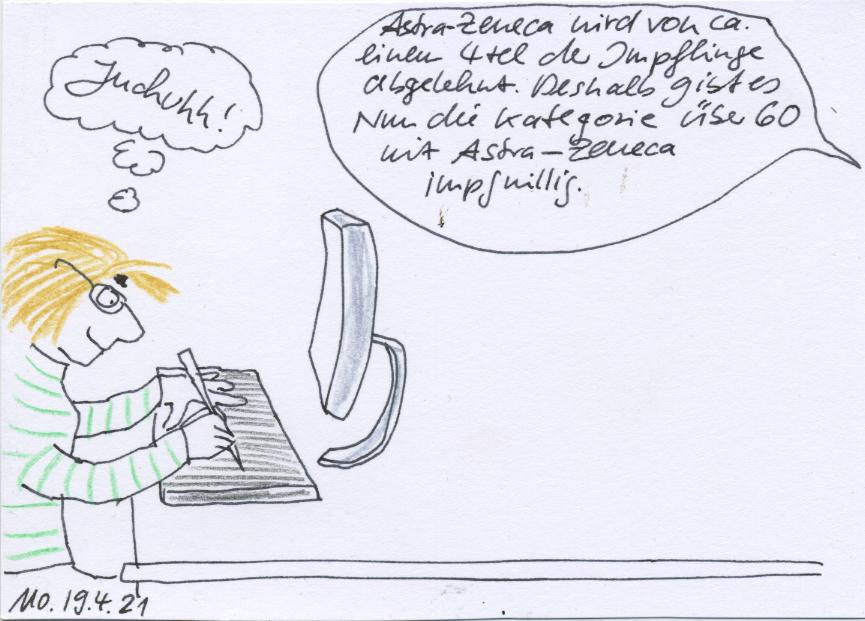 Juchuhh!
Astra-Zeneca wird von ca.
einem 4tel der Impflinge
abgelehnt. Deshalb gibt es
Nun die Kategorie über 60
mit Astra-Zeneca
impfwillig.
Mo. 19.4.21